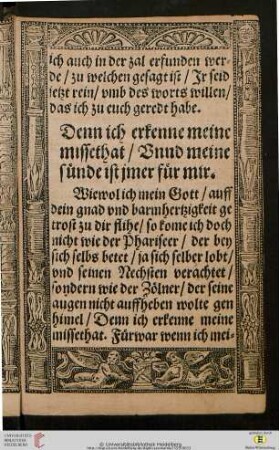 ich auch in der zal erfunden wer-
de / zu welchen gesagt ist / Jr seid
jetzt rein / vmb des worts willen /
das ich zu euch geredt habe.
Denn ich erkenne meine
missethat / Vnnd meine
sünde ist jmer für mir.
Wiewol ich mein Gott / auff
dein gnad vnd barmhertzigkeit ge
trost zu dir flihe / so kome ich doch
nicht wie der Phariseer / der bey
sich selbs betet / ja sich selber lobt /
vnd seinen Nechsten verachtet /
sondern wie der Zölner / der seine
augen nicht auffheben wolte gen
himel / Denn ich erkenne meine
missethat. Fürwar wenn ich mei-
UNIVERSITÄTS-
BIBLIOTHEK
HEIDELBERG
© Universitätsbibliothek Heidelberg